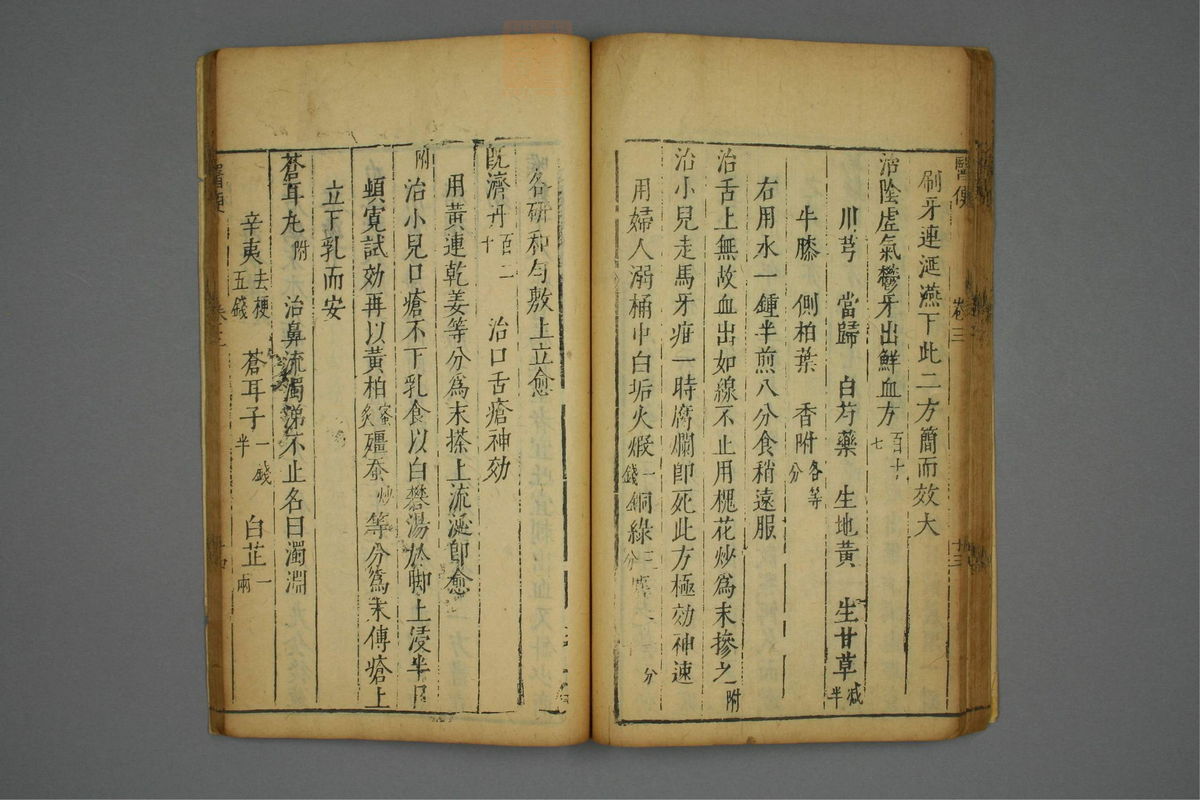 醫便 卷三 廿三
刷牙連涎燕下此二方簡而效大
治陰虛氣鬱牙出鮮血方 百十七
川芎 當歸 白芍藥 生地黃 生甘草 減半
牛膝 側柏葉 香附 各等分
右用水一鍾半煎八分食稍遠服
治舌上無故血出如線不止用槐花炒為末摻之 附
治小兒走馬牙疳一時腐爛即死此方極効神速
用婦人溺桶中白垢火煅 一錢 銅綠 三分 分
各研和勻敷上立愈
既濟丹 百二十 治口舌瘡神効
用黃連乾姜等分為末搽上流涎即愈
附 治小兒口瘡不下乳食以白礬湯於脚上浸半日
頓寛試効再以黃柏 蜜炙 殭蚕 炒 等分為末傅瘡上
立下乳而安
蒼耳丸 附 治鼻流濁涕不止名曰濁淵
辛夷 去梗五錢 蒼耳子 一錢半 白芷 一兩
醫便 卷三 廿四